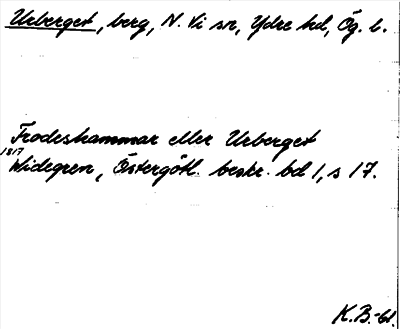 Urberget, berg, N. Vi sn, Ydre hd, Ög. l.
Frodeshammar eller Urberget
1817
Widegren, Östergötl. beskr. bd 1, s 17.
K.B.-61.